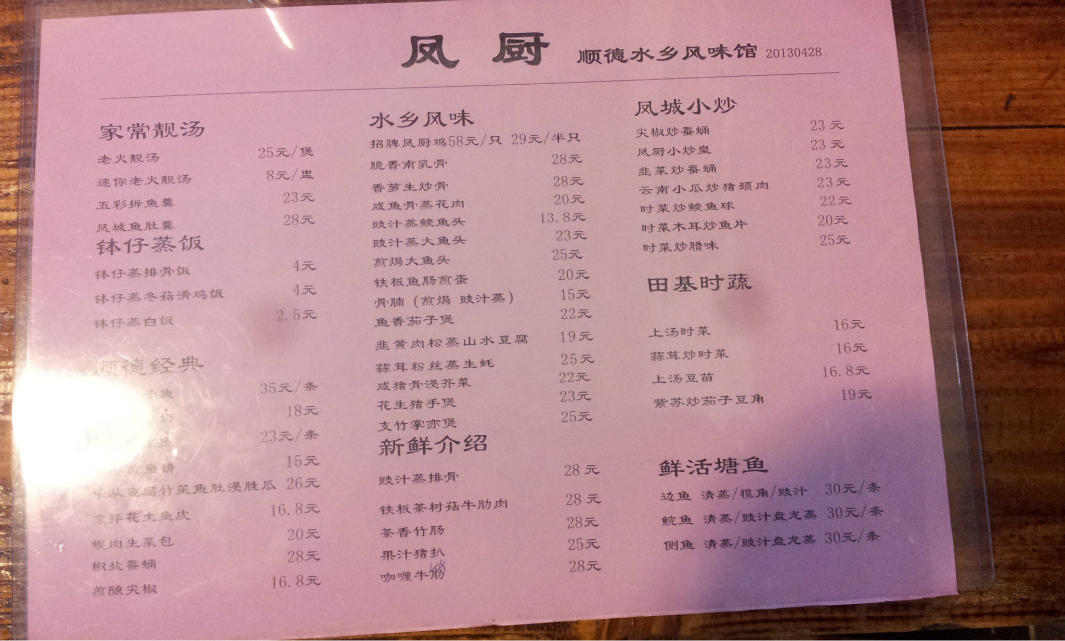 凤 厨 顺德水乡风味馆 20130428
家常靓汤
老火靓汤 25元/煲
迷你老火靓汤 8元/盅
五彩拆鱼羹 23元
凤城鱼肚羹 28元
钵仔蒸饭
钵仔蒸排骨饭 4元
钵仔蒸冬菇滑鸡饭 4元
钵仔蒸白饭 2.5元
顺德经典
35元/条
18元
23元/条
鱼饼 15元
鱼腐竹笙鱼肚浸胜瓜 26元
凉拌花生鱼皮 16.8元
蚬肉生菜包 20元
椒盐蚕蛹 28元
煎酿尖椒 16.8元
水乡风味
招牌凤厨鸡58元/只 29元/半只
脆香南乳骨 28元
香萝生炒骨 28元
咸鱼骨蒸花肉 20元
豉汁蒸鲮鱼头 13.8元
豉汁蒸大鱼头 23元
煎焗大鱼头 25元
铁板鱼肠煎蛋 20元
骨腩（煎焗 豉汁蒸） 15元
鱼香茄子煲 22元
韭黄肉松蒸山水豆腐 19元
蒜茸粉丝蒸生蚝 25元
咸猪骨浸芥菜 22元
花生猪手煲 23元
支竹掌亦煲 25元
新鲜介绍
豉汁蒸排骨 28元
铁板茶树菇牛肋肉 28元
茶香竹肠 28元
果汁猪扒 25元
咖喱牛筋 28元
凤城小炒
尖椒炒蚕蛹 23元
凤厨小炒皇 23元
韭菜炒蚕蛹 23元
云南小瓜炒猪颈肉 23元
时菜炒鲮鱼球 22元
时菜木耳炒鱼片 20元
时菜炒腊味 25元
田基时蔬
上汤时菜 16元
蒜茸炒时菜 16元
上汤豆苗 16.8元
紫苏炒茄子豆角 19元
鲜活塘鱼
边鱼 清蒸/榄角/豉汁 30元/条
鲩鱼 清蒸/豉汁盘龙蒸 30元/条
侧鱼 清蒸/豉汁盘龙蒸 30元/条